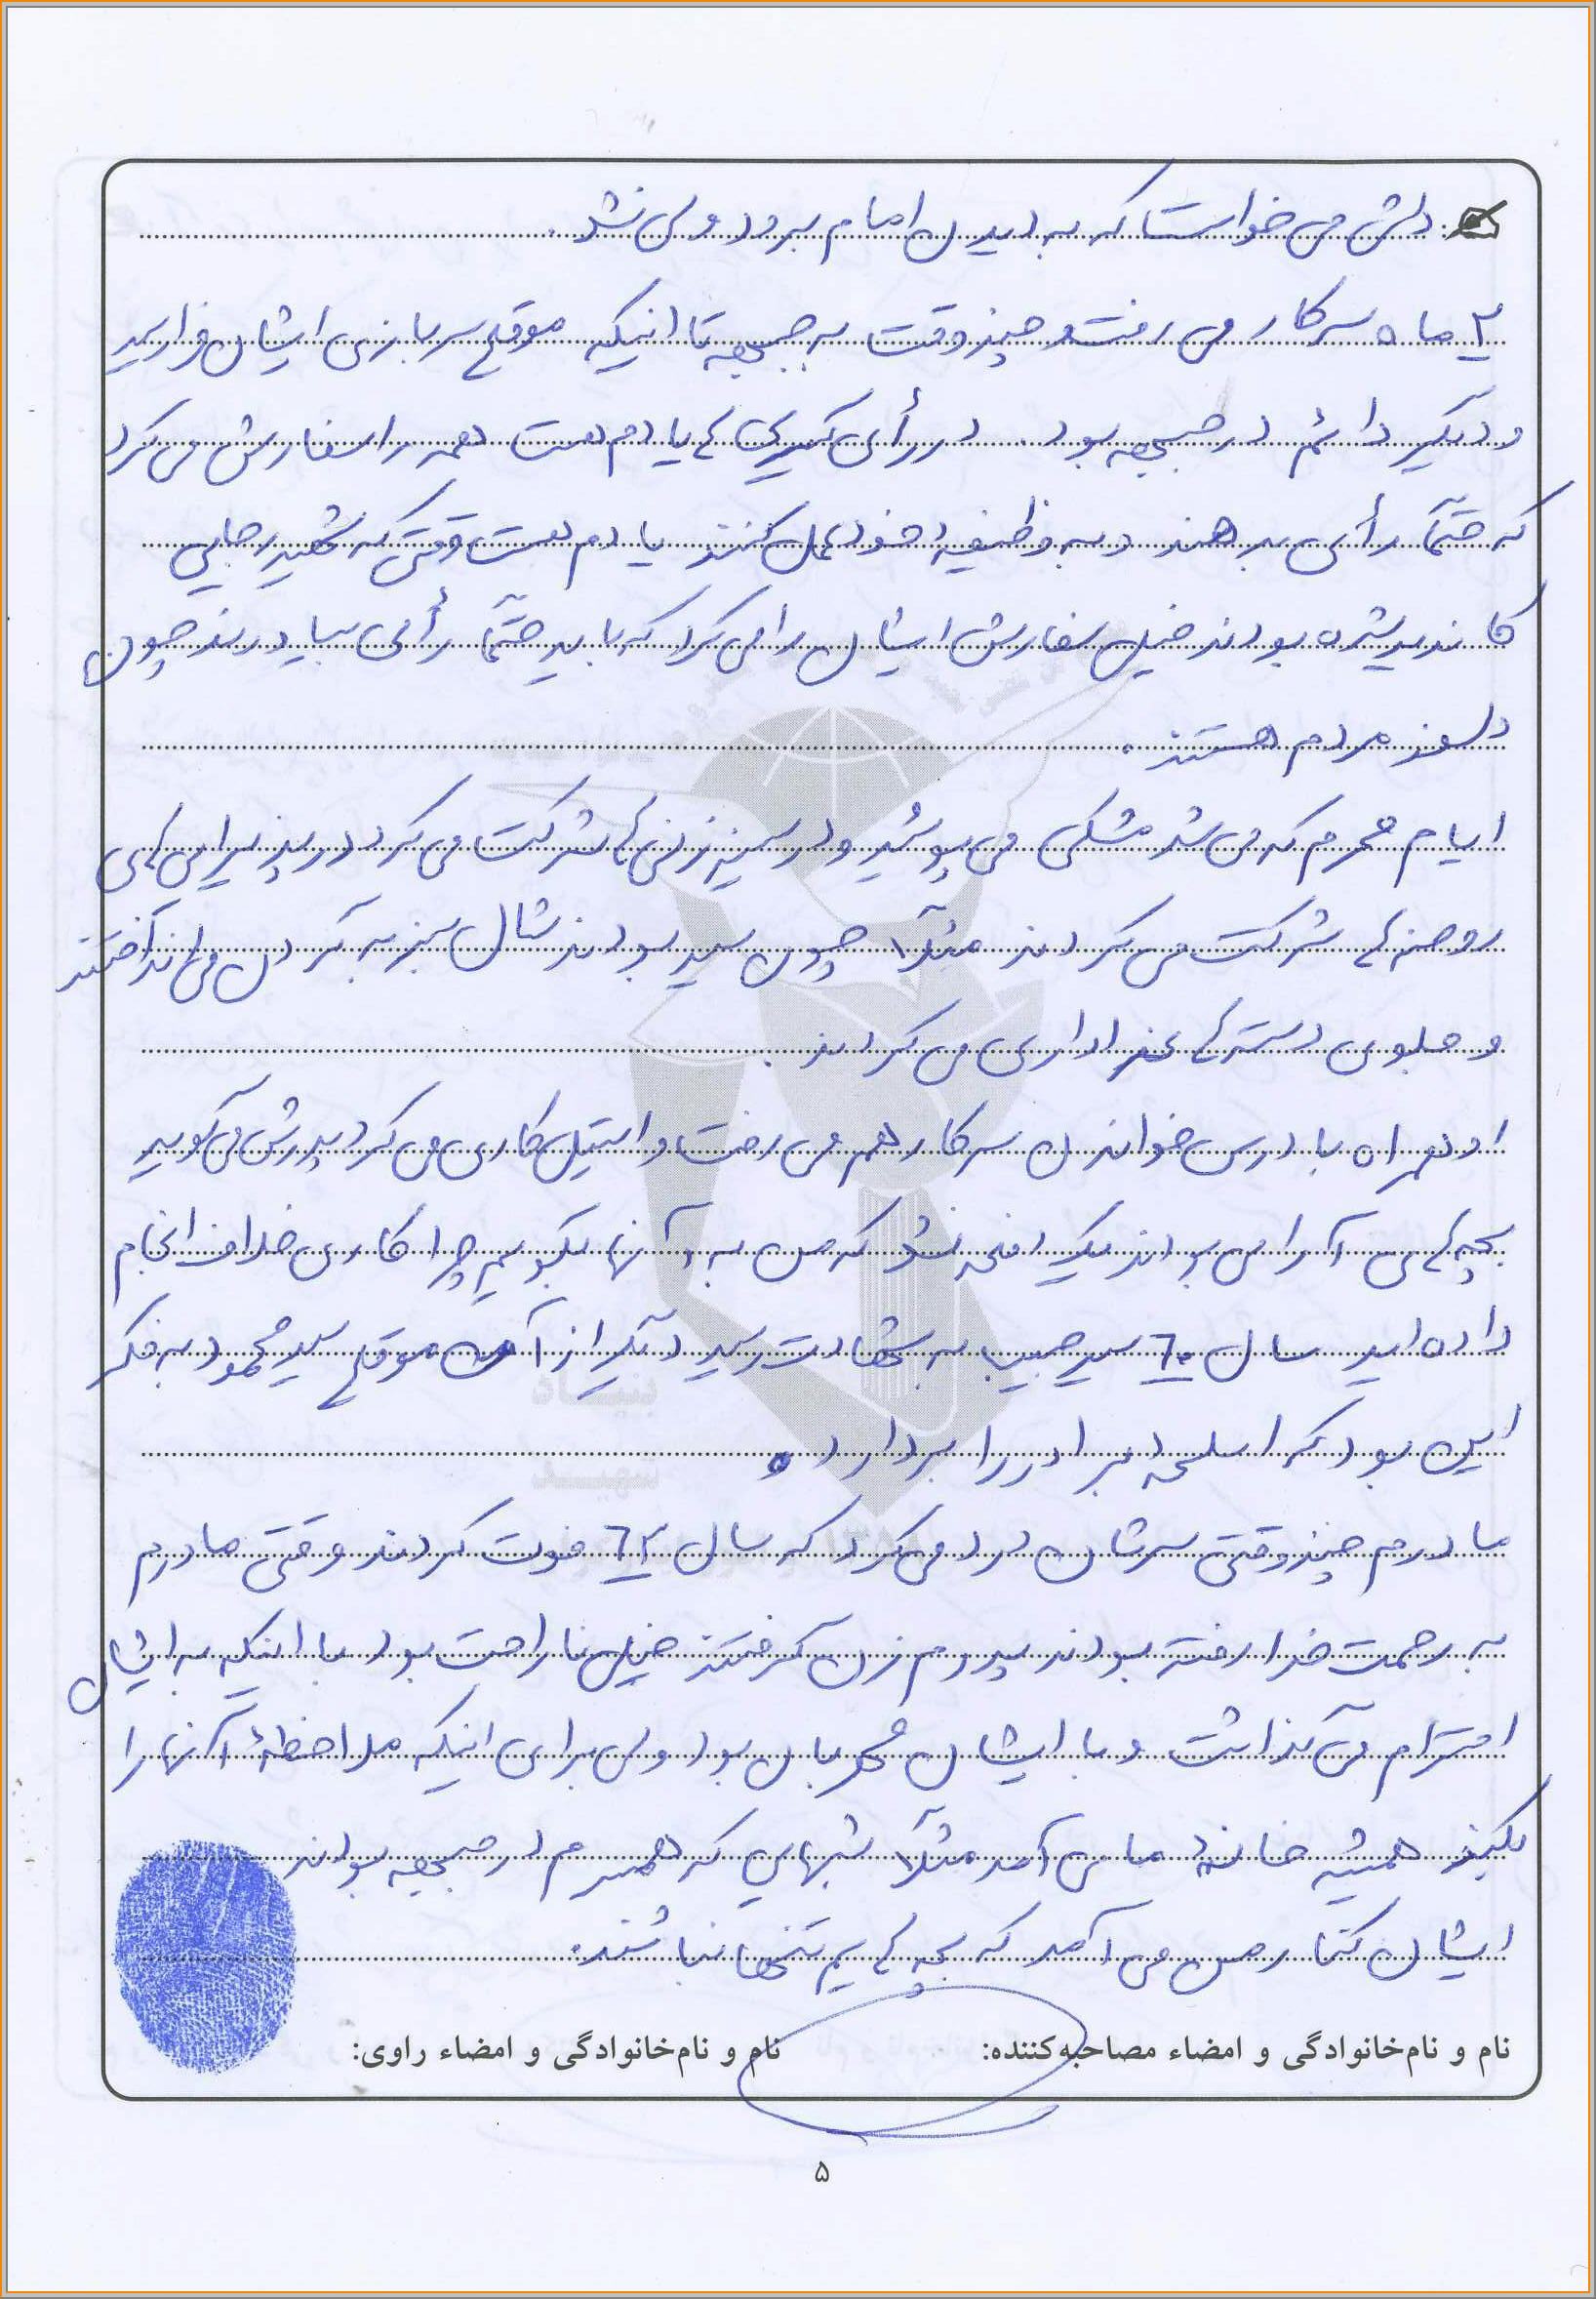 دلش می خواست که به دیدن امام برود ولی نشد.
۲ ماه سرکار می رفت و چند وقت به جبهه تا اینکه موقع سربازی ایشان فرا رسید
و دیگر دائم در جبهه بود. در رأی گیری ها یادم هست همه را سفارش می کرد
که حتماً رأی بدهند و به وظیفه خود عمل کنند یادم هست وقتی که شهید رجایی
کاندید شده بودند خیلی سفارش ایشان را می کرد که باید حتماً رأی بیاورند چون
دلسوز مردم هستند.
ایام محرم که می شد مشکی می پوشید و در سینه زنی ها شرکت می کرد در پذیرایی های
روضه ها شرکت می کردند مثلاً چون سید بودند شال سبز به گردن می انداختند
و جلوی دسته ها عزاداری می کردند.
او همراه با درس خواندن سرکار هم می رفت و استیل کاری می کرد پدرش می گوید
بچه های آرامی بودند یک دفعه نشد که من به آنها بگویم چرا کاری خلاف انجام
داده اید سال ۶۰ سید حبیب به شهادت رسید دیگر از آن موقع سید محمود به فکر
این بود که اسلحه برادر را بردارد.
مادرم چند وقتی سرشان درد می کرد که سال ۶۲ فوت کردند وقتی مادرم
به رحمت خدا رفته بودند پدرم زن گرفتند خیلی ناراحت بود با اینکه به ایشان
احترام می گذاشت و با ایشان مهربان بود ولی برای اینکه ملاحظهٔ آنها را
بکند همیشه خانهٔ ما می آمد مثلاً شبهایی که همسرم در جبهه بودند
ایشان کنار من می آمد که بچه هایم تنها نباشند.
نام و نام‌خانوادگی و امضاء مصاحبه‌کننده: نام و نام‌خانوادگی و امضاء راوی:
۵